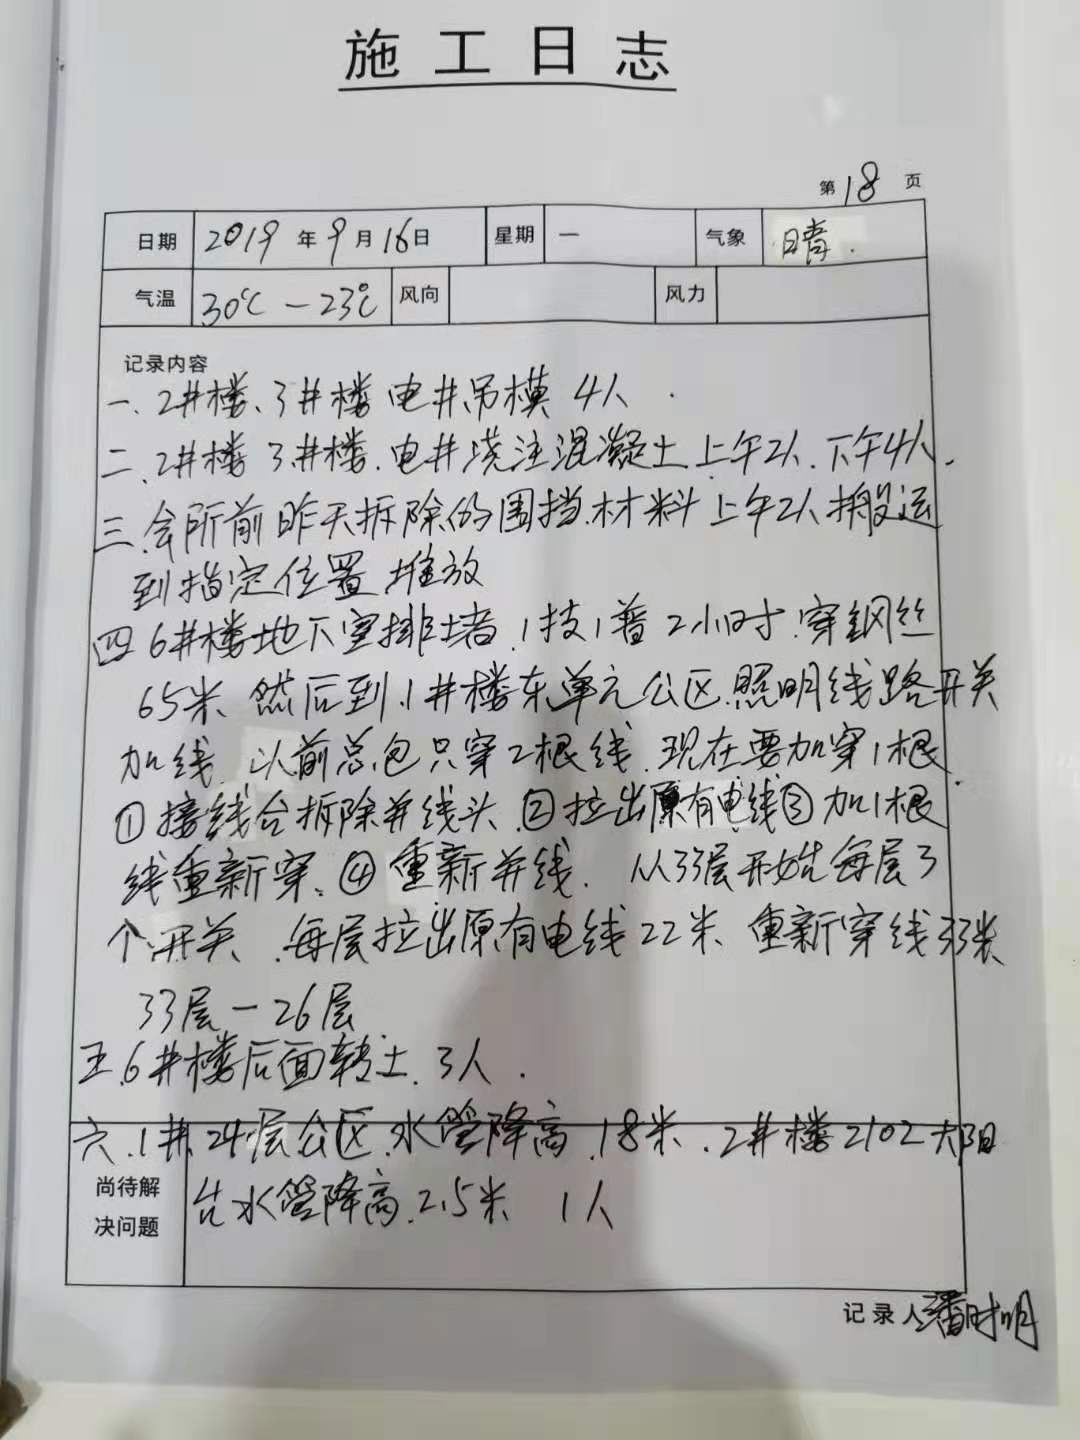 施工日志
第18页
日期 2019年9月16日 星期 一 气象 晴.
气温 30℃-23℃ 风向 风力
记录内容
一、2井楼、3井楼电井吊模 4人.
二、2井楼3井楼.电井浇注混凝土上午2人.下午4人.
三.会所前昨天拆除的围挡材料上午2人搬运
到指定位置堆放
四6井楼地下室排堵.1技1普2小时.穿钢丝
65米、然后到.1井楼东单元公区.照明线路开关
加线.以前总包只穿2根线.现在要加穿1根.
①接线台拆除并线头.②拉出原有电线③加1根
线重新穿、④重新并线. 从33层开始每层3
个开关.每层拉出原有电线22米.重新穿线33米
33层-26层
五.6井楼后面转土.3人.
六.1井.24层公区.水管降高.18米.2井楼2102大阳
尚待解决问题 台水管降高.2.5米 1人
记录人潘时明